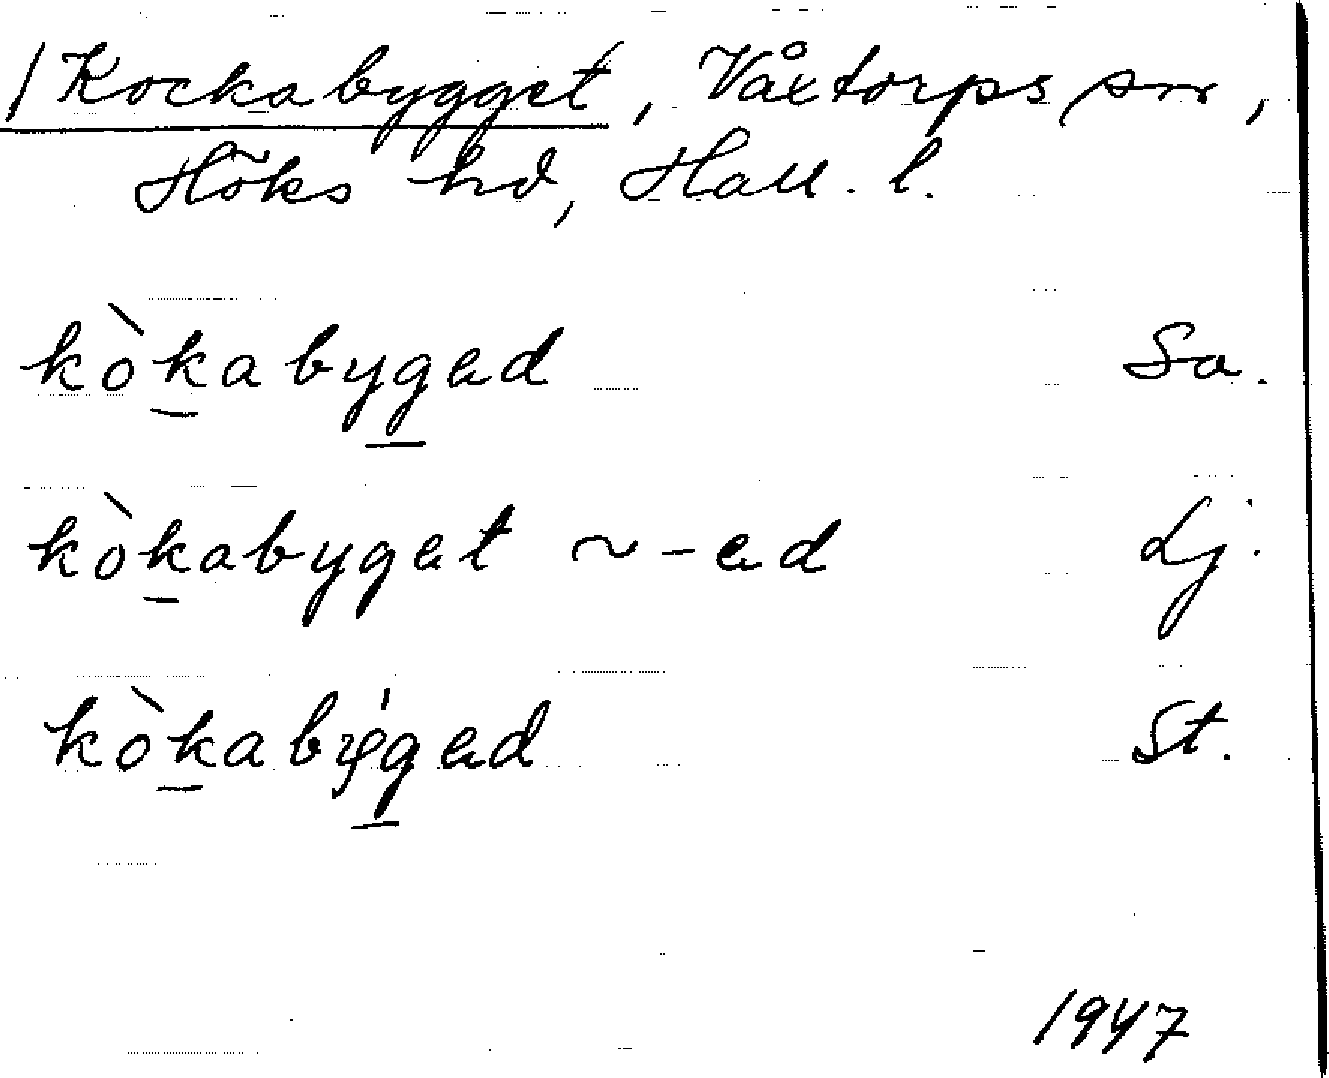 / Kockabygget, Våxtorps sn,
Höks hd, Hall. l.
kòk̲abyg̲ed Sa.
kòk̲abyget ~ -ed Lj.
kòk̲abýg̲ed St.
1947